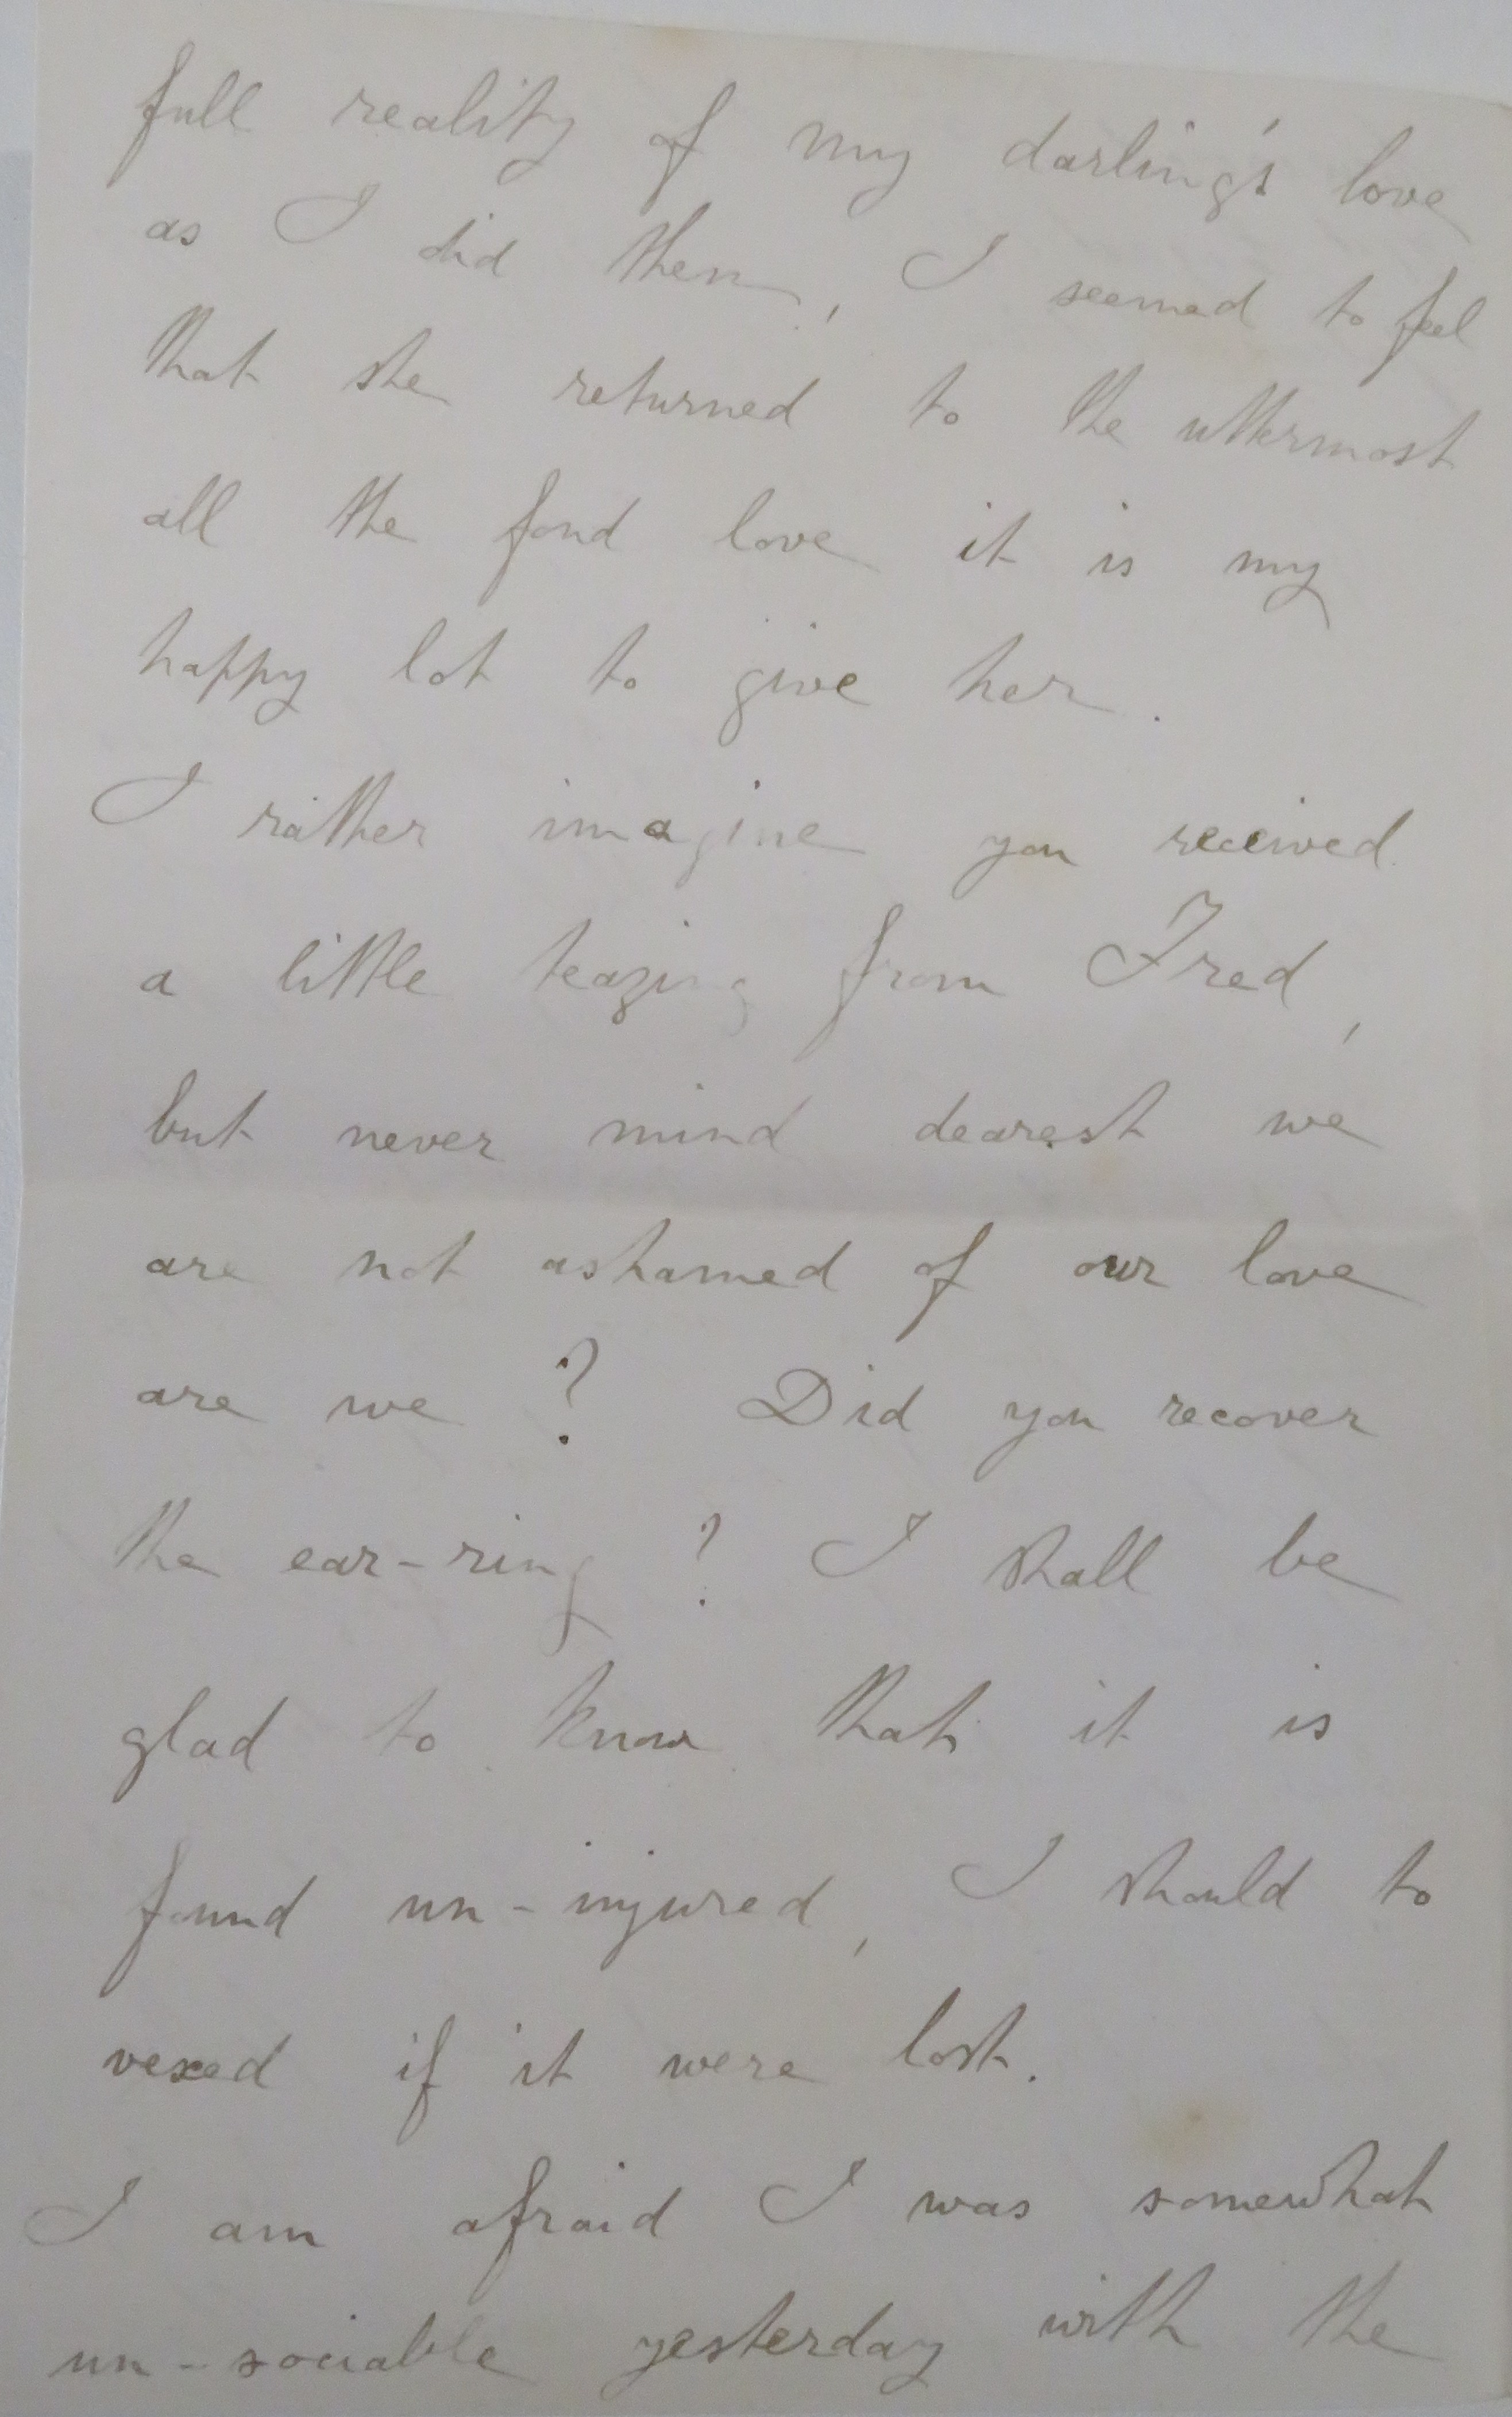 full reality of my darling's love
as I did then, I seemed to feel
that she returned to the uttermost
all the fond love it is my
happy lot to give her.
I rather imagine you received
a little teazing from Fred,
but never mind dearest we
are not ashamed of our love
are we? Did you recover
the ear-ring? I shall be
glad to know that it is
found un-injured, I should to
vexed if it were lost.
I am afraid I was somewhat
un-sociable yesterday with the